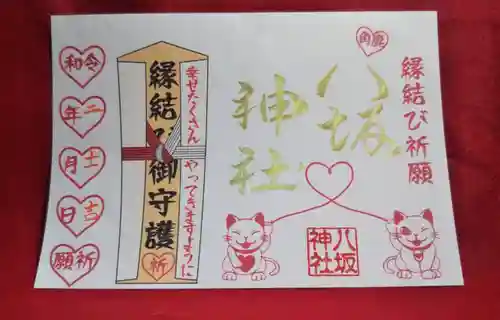 鹿角
縁結び祈願
八坂
神社
八坂
神社
幸せたくさん
やってきますように
縁結び御守護
祈
令和
二年
十一月
吉日
祈願